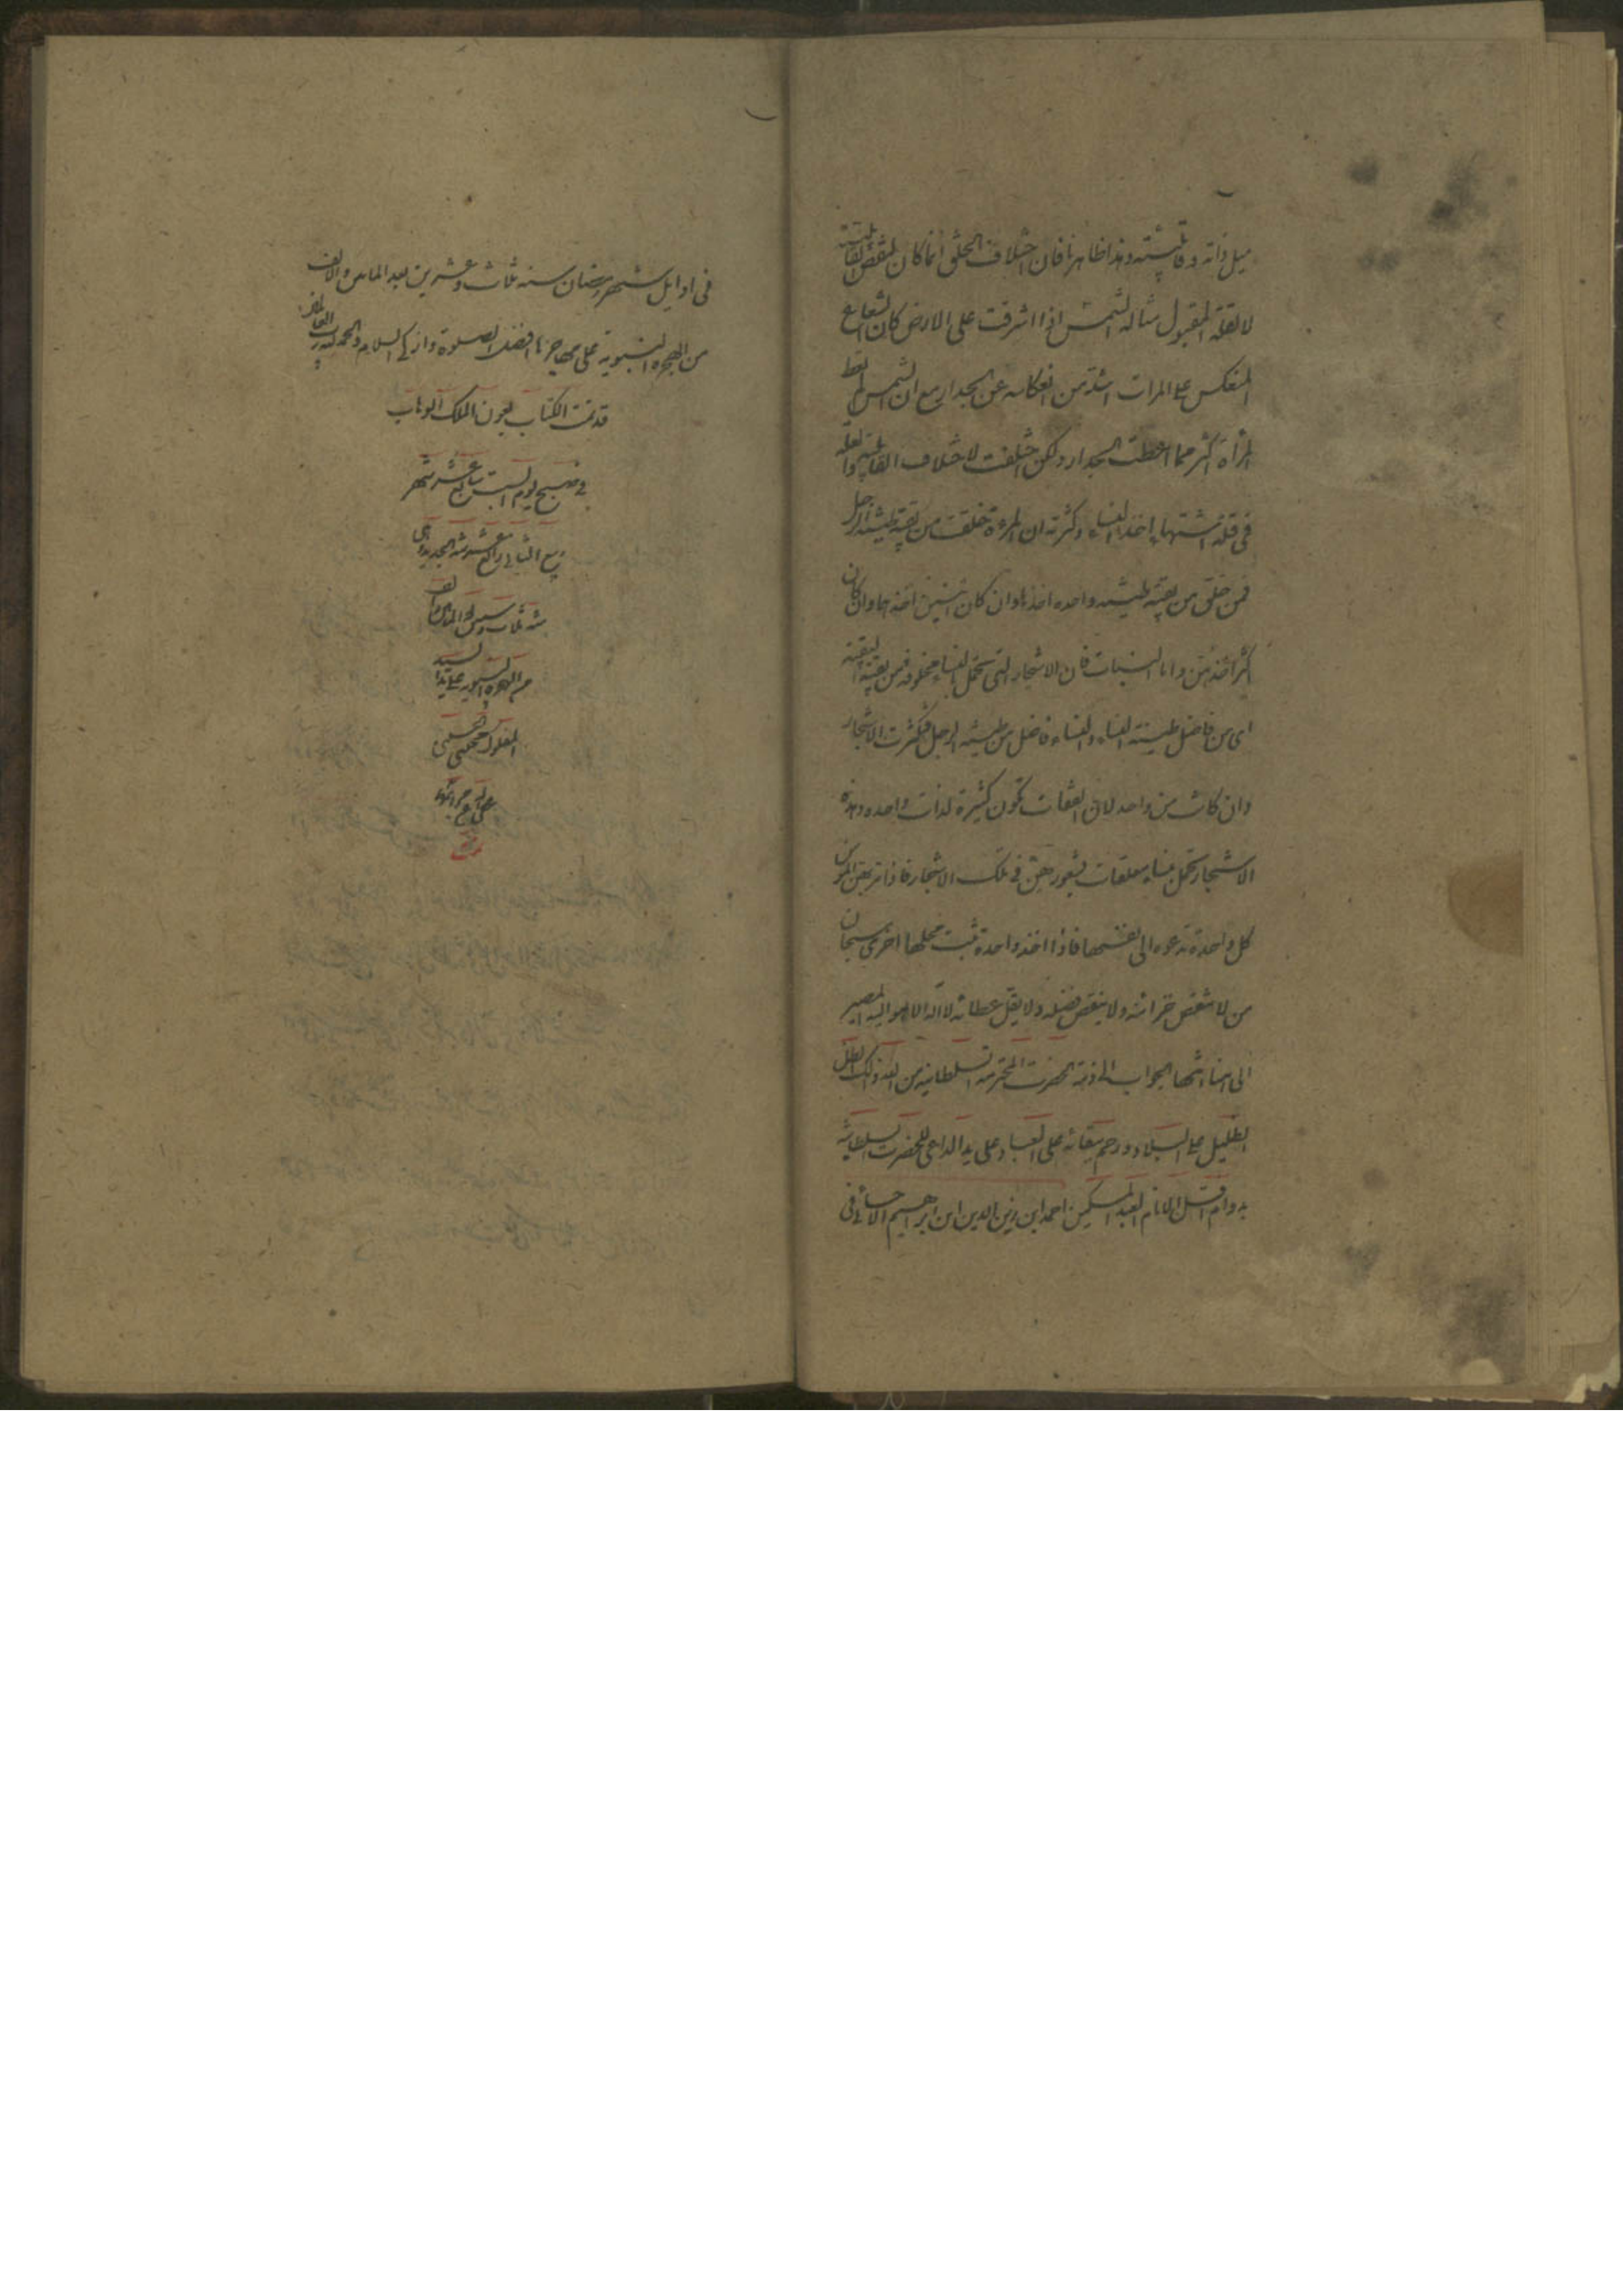 ميل ذاته وقابليته وهذا ظاهر فان اختلاف الخلق انما كان لنقص القابلية
لا لقلة المقبول مثاله الشمس اذا اشرقت على الارض كان الشعاع
المنعكس على المرات اشد من انعكاسه عن الجدار مع ان الشمس لم تعط
المرآة اكثر مما اعطت الجدار ولكن اختلفت لاختلاف القابلية والعلة
في قلة اشتهاء اخذ النساء وكثرته ان المرءة خلقت من بقية طينة الرجل
فمن خلق من بقية طينته واحده اخذها وان كان اثنتين اخذهما وان كان
اكثر اخذهن واما النبات فان الاشجار التي تحمل النساء مخلوقة من بقية البقية
اى من فاضل طينة النساء والنساء من فاضل من طينة الرجل فكثرت الاشجار
وان كانت من واحد لان الصفات تكون كثيرة لذات واحده وهذه
الاشجار تحمل نساء معلقات بشعورهن في تلك الاشجار فاذا مر بهن المؤمن
كل واحدة تدعوه الى نفسها فاذا اخذ واحدة نبت محلها اخرى سبحان
من لا تنقص خزائنه ولا ينقص فضله ولا يقل عطائه لا اله الا هو اليه المصير
الى هنا انتهى الجواب الحضرت المحترمة السلطانية من الله ذلك الظل
الظليل على البلاد ورحم ببقائه على العباد على يد الداعي للحضرت السلطانية
بدوام اقل الانام العبد المسكين احمد ابن زين الدين ابن ابراهيم الاحسائي في
في اوايل شهر رمضان سنه ثلاث وعشرين بعد الماتين والالف
من الهجرة النبوية على مهاجرها افضل الصلوة وازكى السلام والحمد لله رب العالمين
قد تمت الكتاب بعون الملك الوهاب
في صبح يوم السبت عشر شهر
ربيع الثاني
سنه ثلاث و
من الهجرة النبوية على يد السيد